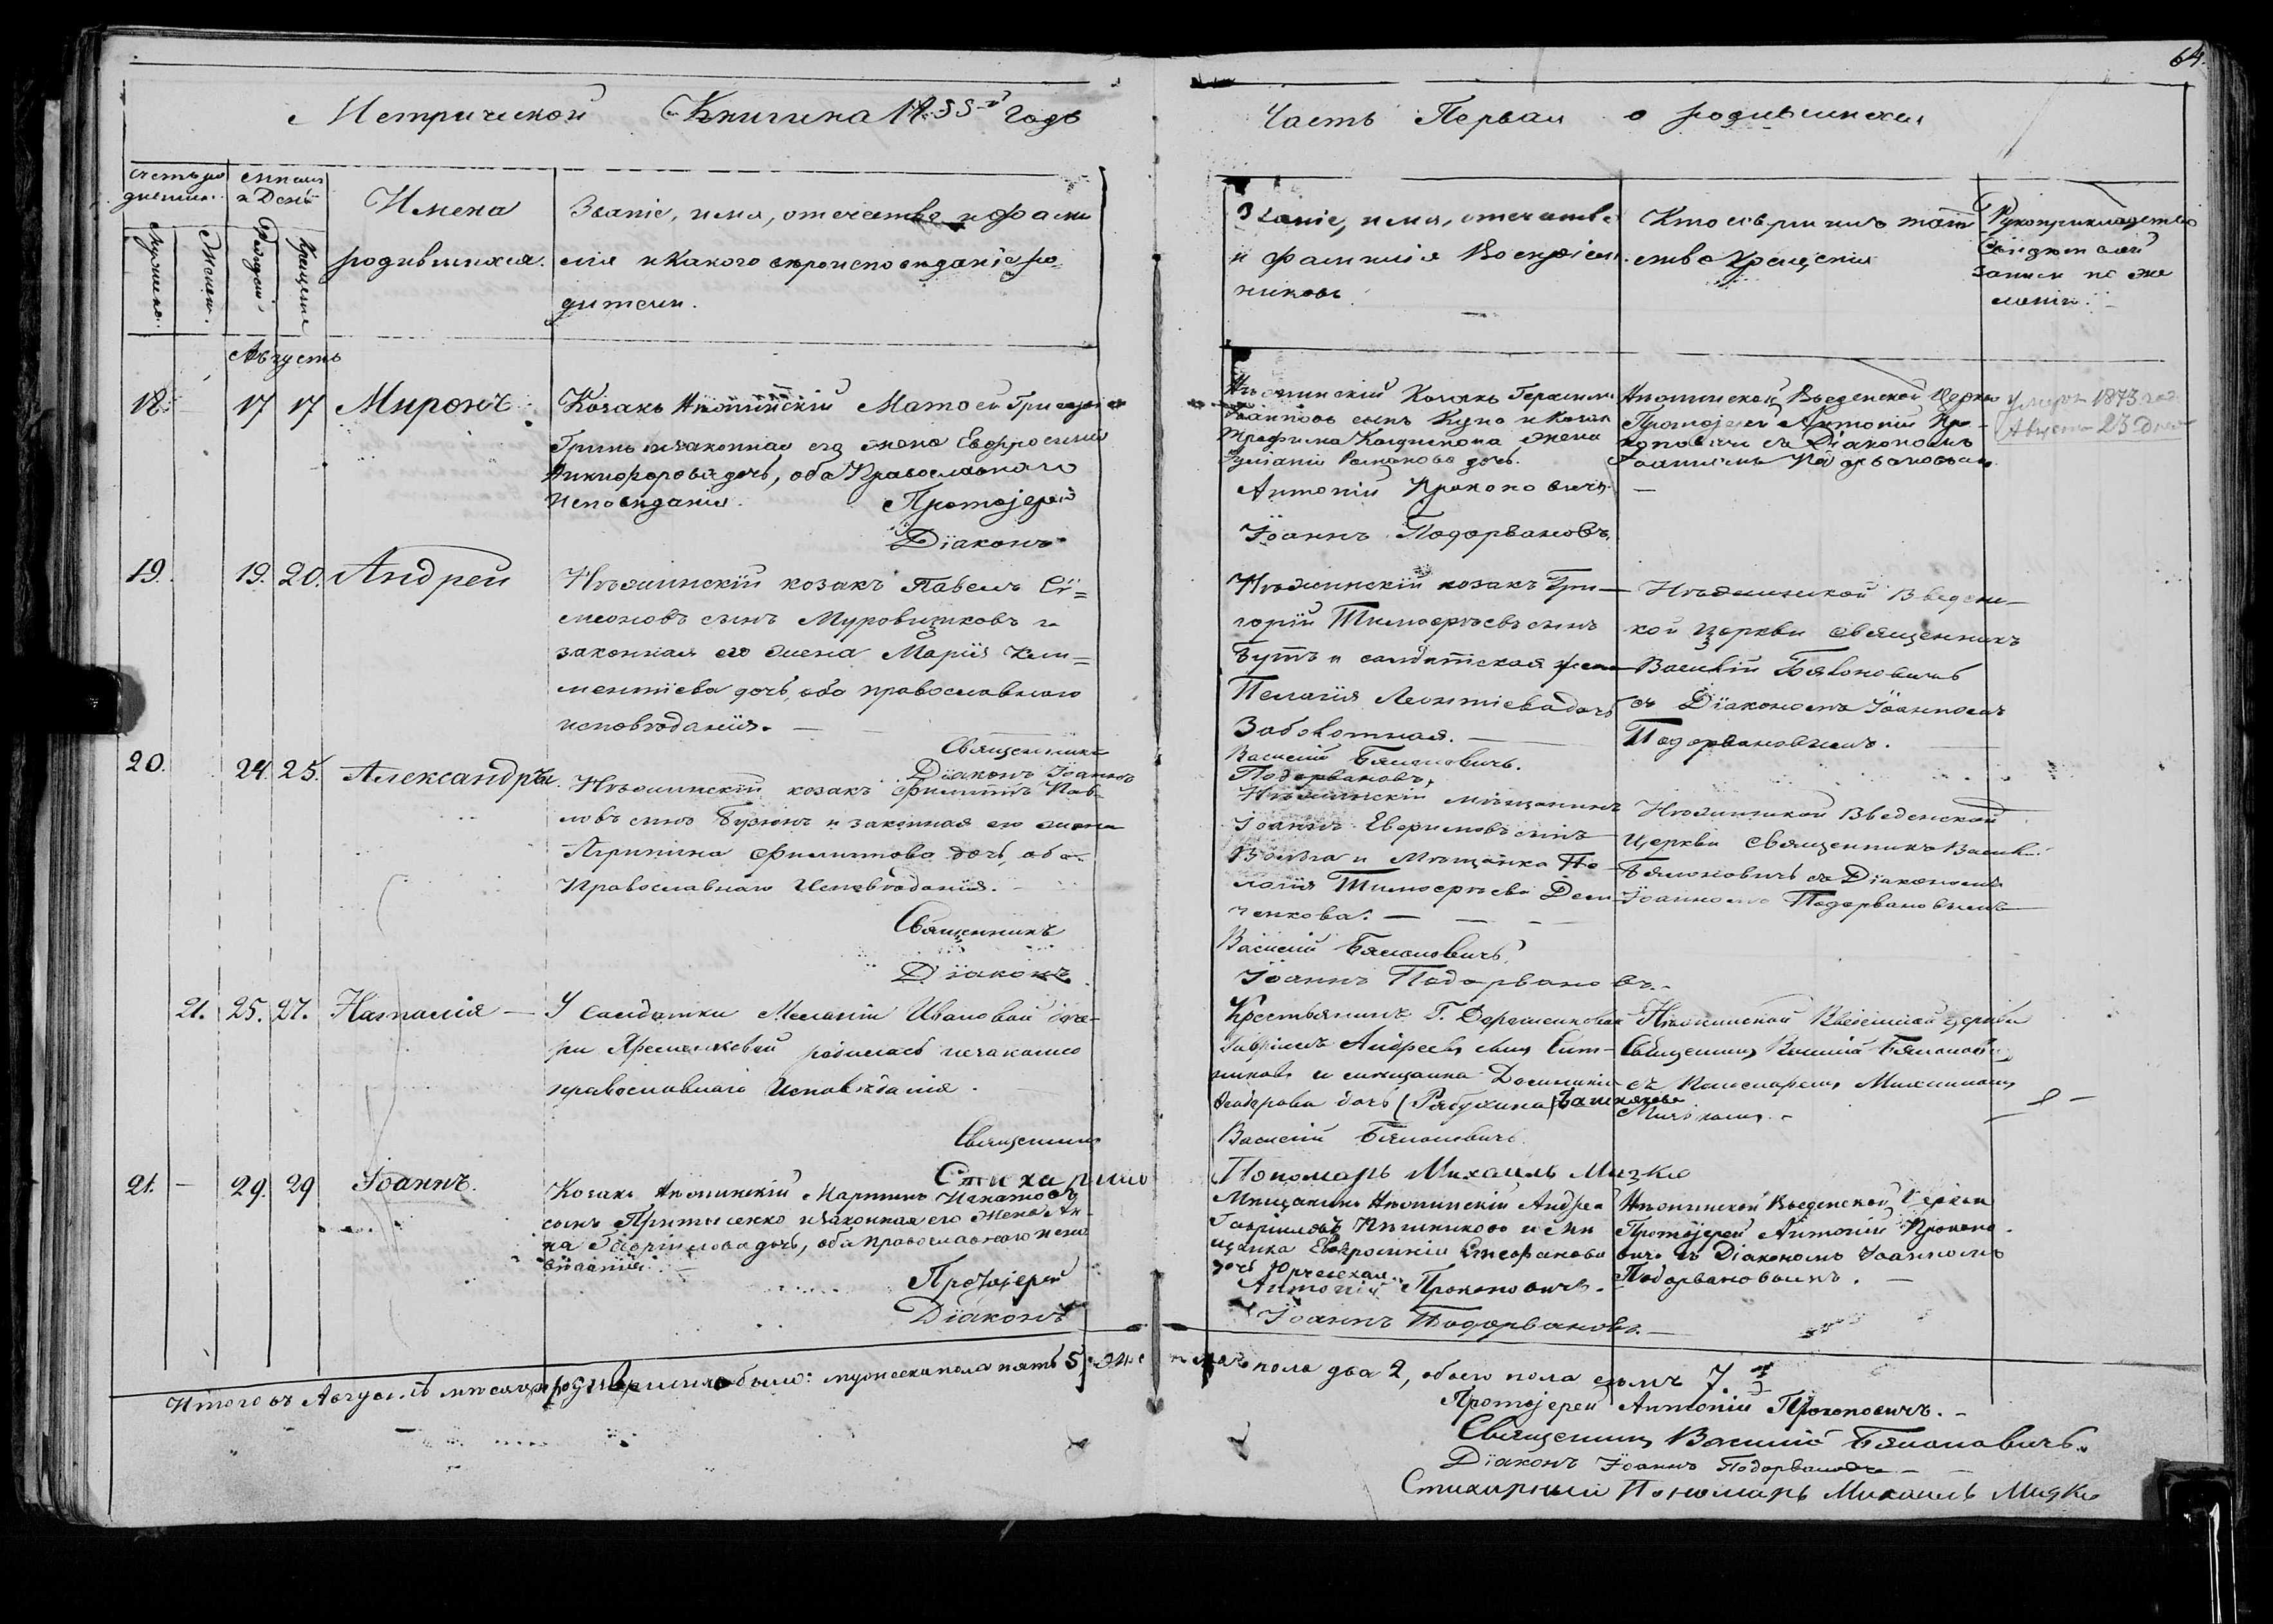 64.
Метрической Книги на 1855й Годъ
Часть Первая о родившихся
Счетъ ро
дившихся.
Мужеска.
Женска.
Мѣсяцъ
и День
Рожденія
Крещенія
Имена
родившихся.
Званіе, имя, отечество и фами
лія и Какого вѣроисповѣданія ро
дители.
Званіе, имя, отечество
и фамилія Воспріем
никовъ
Кто совершилъ таин
ство крещенія
Рукоприкладство
Свидѣтелей
записи по же
ланію.
Августъ
18. 17 17 Миронъ
Козакъ Нѣжинскій Матѳей
Гринь и законная его жена Евфросинія
Никифорова дочь, оба Православнаго
Исповѣданія. Протоіерей
Діаконъ
Нѣжинскій Козакъ Герасимъ
сынъ и Козака
Трофима жена
дочь.
Антоній Прокоповичъ
Іоаннъ Подорвановъ.
Нѣжинской Введенской Церкви
Протоіерей Антоній Про-
коповичъ съ Діакономъ
Іоанномъ Подорвановымъ
Умеръ 1873 год
Августа 23 дня
19. 19. 20. Андрей
Нѣжинскій козакъ Павелъ Сѵ=
меоновъ сынъ и
законная его жена Марія Кли=
ментіева дочь, оба православнаго
исповѣданія.
Священникъ
Діаконъ Іоаннъ
Нѣжинскій козакъ Гри-
горій Тимоѳеевъ сынъ
Бутъ и солдатская жена
Пелагія Леонтіева дочь
Заболотная.
Василій Бялоновичъ.
Подорвановъ.
Нѣжинской Введен-
кой церкви священникъ
Василій Бялоновичъ
съ Діакономъ Іоанномъ
Подорвановымъ.
20. 24. 25. Александръ
Нѣжинскій козакъ Филиппъ Пав-
ловъ сынъ и законная его жена
Агрипина Филиппова дочь, оба
Православнаго Исповѣданія.
Священникъ
Діаконъ
Нѣжинскій мѣщанинъ
Іоаннъ сынъ
и Мѣщанка Пе-
лагія Тимоѳеева Дем-
ченкова.
Василій Бялоновичъ
Іоаннъ Подорвановъ.
Нѣжинской Введенской
Церкви Священникъ Василій
Бялоновичъ съ Діакономъ
Іоанномъ Подорвановымъ
21. 25. 27. Наталія
У Солдатки Меланіи Ивановой доче-
ри родилась незаконно
православнаго Исповѣданія.
Священникъ
Стихарный
Крестьянинъ Г.
Гавріилъ Андреевъ сынъ
и мѣщанка
дочь (Рябухина)
Василій Бялоновичъ
Пономарь Михаилъ
Нѣжинской Введенской церкви
Священникъ Василій Бялоновичъ
съ Пономаремъ Михаиломъ
21. - 29. 29 Іоаннъ.
Козакъ Нѣжинскій Мартинъ Игнатовъ
сынъ и законная его Жена Ан-
на Гавріилова дочь, оба православнаго испо
вѣданія.
Протоіерей
Діаконъ
Мѣщанинъ Нѣжинскій Андрей
Гавріиловъ и мѣ
щанка Евфросинія Стефанова
дочь
Антоній Прокоповичъ.
Іоаннъ Подорвановъ.
Нѣжинской Введенской Церкви
Протоіерей Антоній Прокопо-
вичъ съ Діакономъ Іоанномъ
Подорвановымъ.
Итого въ Августѣ мѣсяцѣ родившихся было: мужеска пола пять 5, женска пола два 2, обоего пола семь 7.
Протоіерей Антоній Прокоповичъ.
Священникъ Василій Бялоновичъ.
Діаконъ Іоаннъ Подорвановъ
Стихарный Пономарь Михаилъ